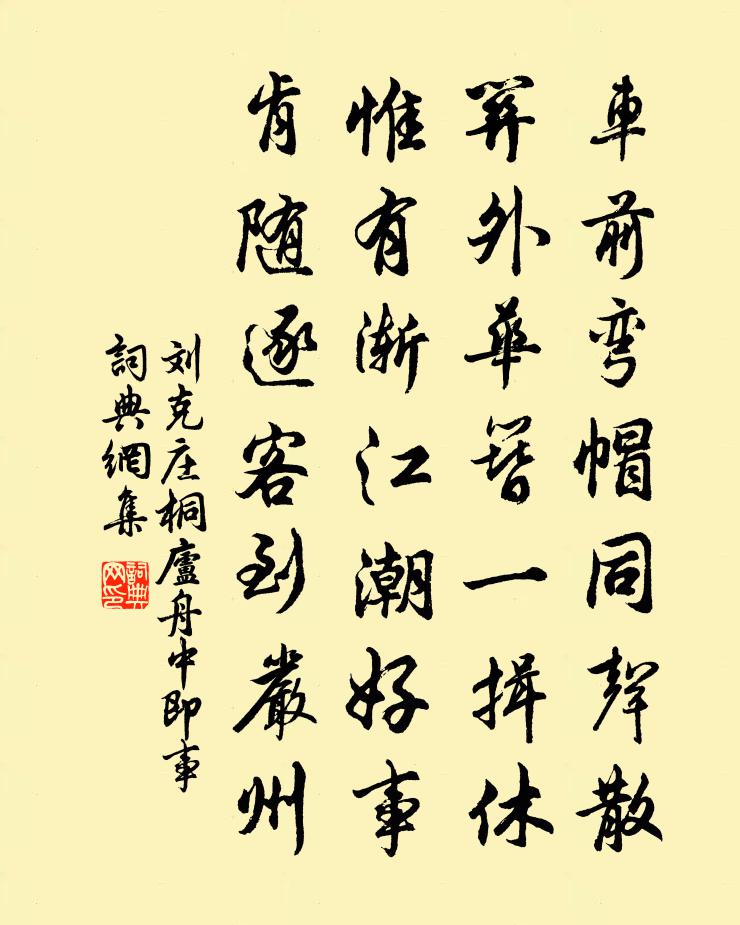 車前弯帽同聲散
笄外華簪一揖休
惟有渐江潮好事
肯随逐客到嚴州
刘克庄桐廬舟中即事
詞典網集
詞典网印